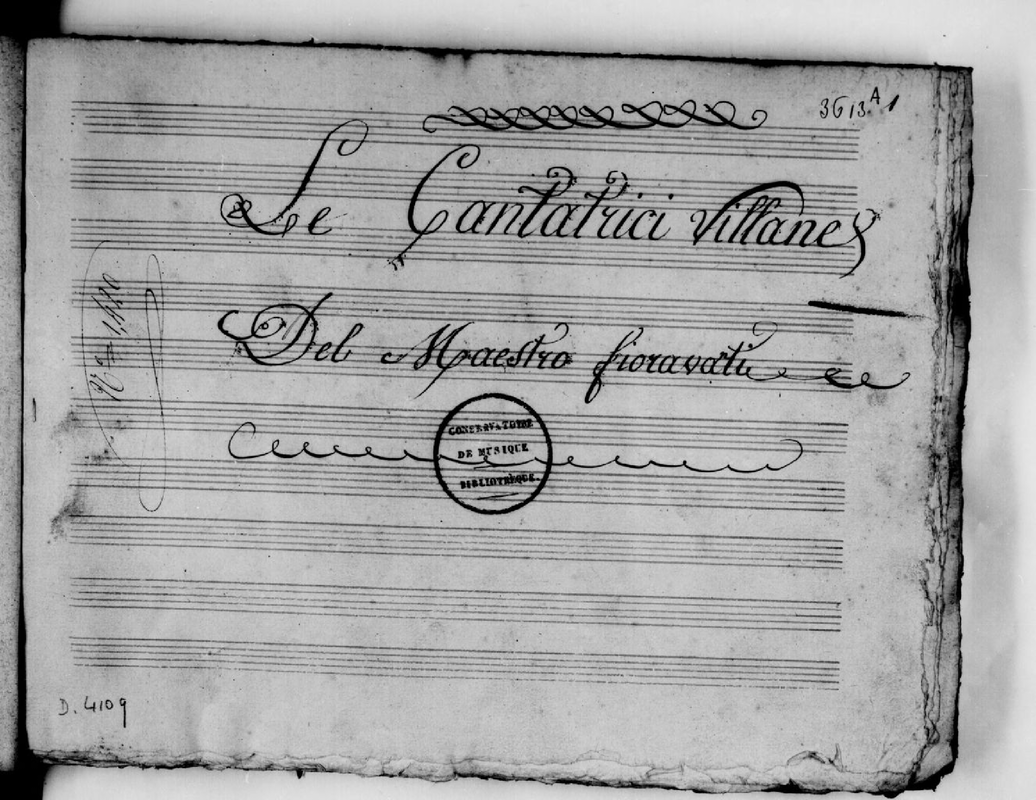 3613 A 1
Le Cantatrici Villane
Del Maestro fioravati
CONSERVATOIRE
DE MUSIQUE
BIBLIOTHÈQUE.
D. 4109